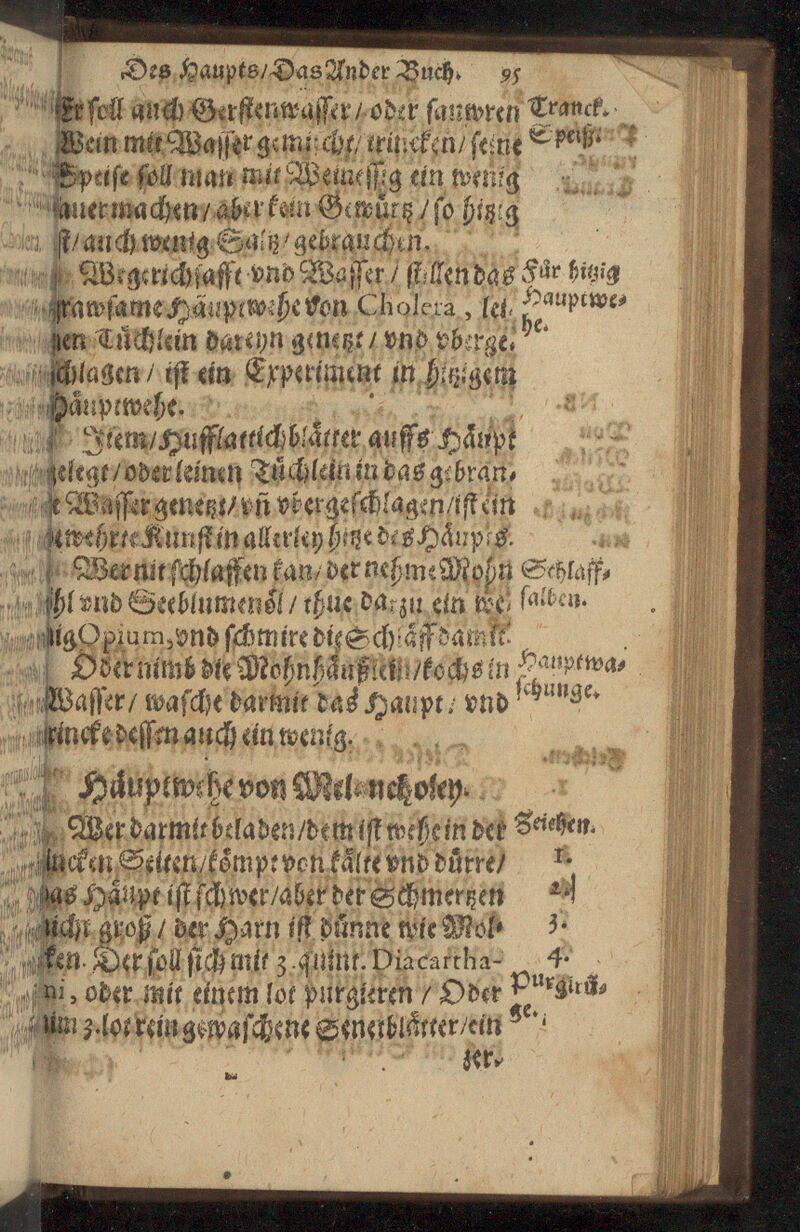 Des Haupts/Das Ander Buch. 95
Er soll auch Gerstenwasser/oder sauwren Tranck.
Wein mit Wasser gemischt/trincken/seine Speiß.
Speise soll man mit Weinessig ein wenig
sauer machen/aber kein Gewürtz/so hitzig
ist/auch wenig Saltz/gebrauchen.
Wegerichsafft vnd Wasser/stillen das Für hitzig
Häuptwehe von Cholera, lei- Hauptwe-
nen Tüchlein dareyn genetzt/vnd vberge- he.
schlagen/ist ein Experiment in hitzigem
Häuptwehe.
Item/Hufflattichblätter auffs Häupt
gelegt/oder leinen Tüchlein in das gebran-
te Wasser genetzt/vñ vbergeschlagen/ist ein
bewehrte Kunst in allerley hitze des Häupts.
Wer nit schlaffen kan/der nehme Mohn Schlaff-
öhl vnd Seeblumenöl/thue darzu ein we- salben.
nig Opium, vnd schmire die Schläff damit.
Oder nimb die Mohnhäußlein/kochs in Hauptwa-
Wasser/wasche darmit das Haupt/vnd schunge.
trincke dessen auch ein wenig.
Häuptwehe von Melancholey.
Wer darmit beladen/dem ist wehe in der Zeichen.
lincken Seiten/kömpt von kälte vnd dürre/ 1.
das Häupt ist schwer/aber der Schmertzen 2.
nicht groß/der Harn ist dünne wie Mol- 3.
ken. Der soll sich mit 3. quint. Diacartha- 4.
mi, oder mit einem lot purgieren/Oder Purgirũ-
nim 3. lot rein gewaschene Senetblätter/ein ge.
zer-